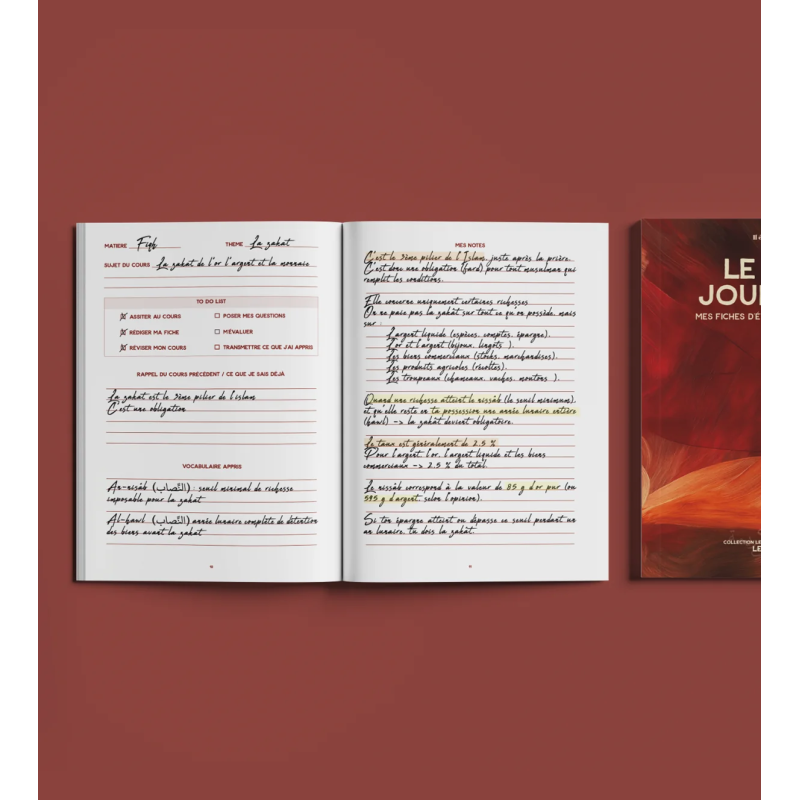 MATIÈRE Fiqh THÈME La zakât
SUJET DU COURS La zakât de l'or l'argent et la monnaie
TO DO LIST
ASSITER AU COURS
POSER MES QUESTIONS
RÉDIGER MA FICHE
MÉVALUER
RÉVISER MON COURS
TRANSMETTRE CE QUE J'AI APPRIS
RAPPEL DU COURS PRÉCÉDENT / CE QUE JE SAIS DÉJÀ
La zakât est le 3ème pilier de l'islam
C'est une obligation
VOCABULAIRE APPRIS
An-nisâb (النِّصاب) : seuil minimal de richesse
imposable pour la zakât
Al-hawl (النِّصاب) année lunaire complète de détention
des biens avant la zakât
MES NOTES
C'est le 3ème pilier de l'Islam, juste après la prière.
C'est donc une obligation (fard) pour tout musulman qui
remplit les conditions.
Elle concerne uniquement certaines richesses
On ne paie pas la zakât sur tout ce qu'on possède, mais
sur :
L'argent liquide (espèces, comptes, épargne).
L'or et l'argent (bijoux, lingots ).
Les biens commerciaux (stocks, marchandises).
Les produits agricoles (récoltes).
Les troupeaux (chameaux, vaches, moutons ).
Quand une richesse atteint le nissâb (le seuil minimum),
et qu'elle reste en ta possession une année lunaire entière
(hawl) -> la zakât devient obligatoire.
Le taux est généralement de 2.5 %
Pour l'argent, l'or, l'argent liquide et les biens
commerciaux -> 2.5 % du total.
Le nissâb correspond à la valeur de 85 g d'or pur (ou
595 g d'argent, selon l'opinion).
Si ton épargne atteint ou dépasse ce seuil pendant un
an lunaire, tu dois la zakât.
LE
JOU
MES FICHES D'É
COLLECTION LE
LE